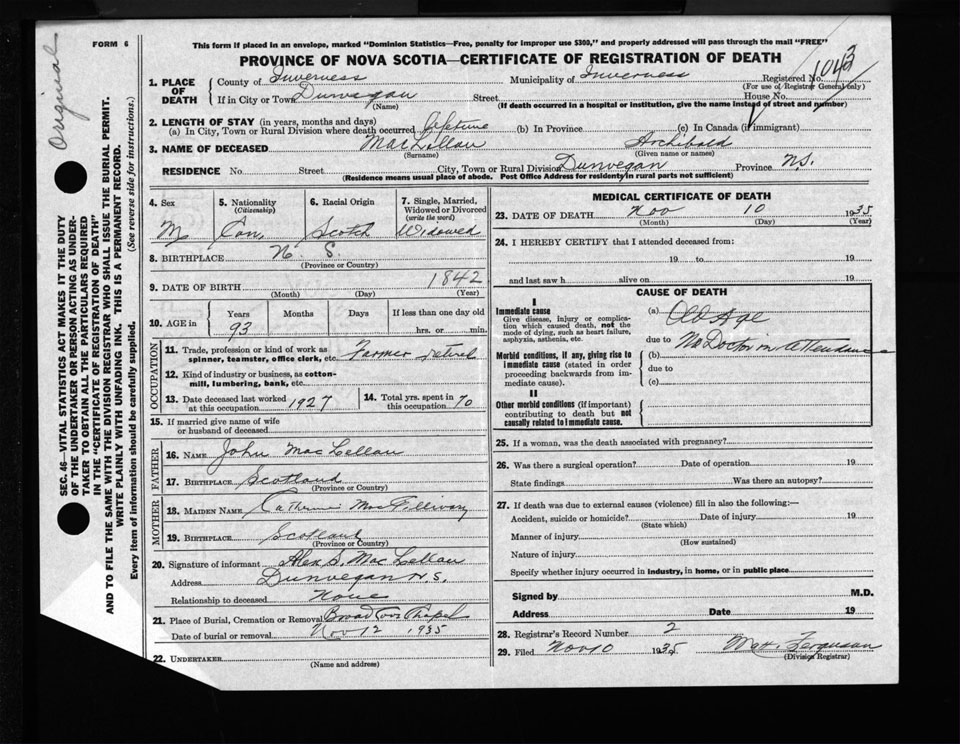 Original
FORM 6
This form if placed in an envelope, marked "Dominion Statistics—Free, penalty for improper use $300," and properly addressed will pass through the mail "FREE"
PROVINCE OF NOVA SCOTIA—CERTIFICATE OF REGISTRATION OF DEATH
SEC. 46—VITAL STATISTICS ACT MAKES IT THE DUTY
OF THE UNDERTAKER OR PERSON ACTING AS UNDER-
TAKER TO OBTAIN ALL THE PARTICULARS REQUIRED
IN THE "CERTIFICATE OF REGISTRATION OF DEATH"
AND TO FILE THE SAME WITH THE DIVISION REGISTRAR WHO SHALL ISSUE THE BURIAL PERMIT.
WRITE PLAINLY WITH UNFADING INK. THIS IS A PERMANENT RECORD.
Every item of information should be carefully supplied. (See reverse side for instructions.)
1. PLACE OF DEATH
County of Inverness Municipality of Inverness Registered No. 1043
(For use of Registrar General only)
If in City or Town Dunvegan Street House No.
(Name) (If death occurred in a hospital or institution, give the name instead of street and number)
2. LENGTH OF STAY (in years, months and days)
(a) In City, Town or Rural Division where death occurred lifetime (b) In Province (c) In Canada (if immigrant)
3. NAME OF DECEASED MacLellan Archibald
(Surname) (Given name or names)
RESIDENCE No. Street City, Town or Rural Division Dunvegan Province N.S.
(Residence means usual place of abode. Post Office Address for residents in rural parts not sufficient)
4. Sex
M
5. Nationality
(Citizenship)
Can.
6. Racial Origin
Scotch
7. Single, Married,
Widowed or Divorced
(write the word)
Widowed
8. BIRTHPLACE N. S.
(Province or Country)
9. DATE OF BIRTH 1842
(Month) (Day) (Year)
10. AGE in
Years Months Days If less than one day old
93 hrs. or min.
OCCUPATION
11. Trade, profession or kind of work as
spinner, teamster, office clerk, etc. Farmer retired
12. Kind of industry or business, as cotton-
mill, lumbering, bank, etc.
13. Date deceased last worked
at this occupation 1927
14. Total yrs. spent in
this occupation 70
15. If married give name of wife
or husband of deceased
FATHER
16. NAME John MacLellan
17. BIRTHPLACE Scotland
(Province or Country)
MOTHER
18. MAIDEN NAME Catherine MacGillivary
19. BIRTHPLACE Scotland
(Province or Country)
20. Signature of informant Alex S. MacLellan
Address Dunvegan N.S.
Relationship to deceased None
21. Place of Burial, Cremation or Removal Broad Cove Chapel
Date of burial or removal Nov 12 1935
22. UNDERTAKER
(Name and address)
MEDICAL CERTIFICATE OF DEATH
23. DATE OF DEATH Nov 10 1935
(Month) (Day) (Year)
24. I HEREBY CERTIFY that I attended deceased from:
19 to 19
and last saw h alive on 19
CAUSE OF DEATH
I
Immediate cause
Give disease, injury or complica-
tion which caused death, not the
mode of dying, such as heart failure,
asphyxia, asthenia, etc.
(a) Old Age
due to No Doctor in attendance
Morbid conditions, if any, giving rise to
immediate cause (stated in order
proceeding backwards from im-
mediate cause).
(b)
due to
(c)
II
Other morbid conditions (if important)
contributing to death but not
causally related to immediate cause.
25. If a woman, was the death associated with pregnancy?
26. Was there a surgical operation? Date of operation 19
State findings Was there an autopsy?
27. If death was due to external causes (violence) fill in also the following:—
Accident, suicide or homicide? Date of injury 19
(State which)
Manner of injury
(How sustained)
Nature of injury
Specify whether injury occurred in industry, in home, or in public place
Signed by M.D.
Address Date 19
28. Registrar's Record Number 2
29. Filed Nov 10 1935 Ferguson
(Division Registrar)